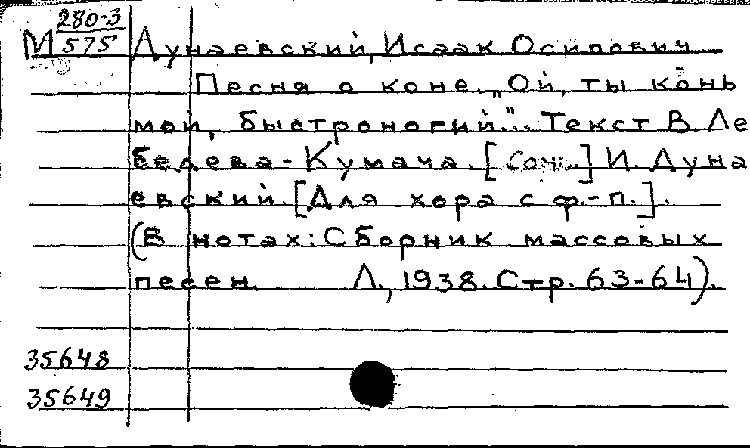 М 280-3
575
Дунаевский, Исаак Осипович
Песня о коне. „Ой, ты конь
мой, быстроногий“... Текст В. Ле
бедева-Кумача. [Соч.] И. Дуна
евский. [Для хора с ф.-п.].
(В нотах: Сборник массовых
песен. Л., 1938. Стр. 63-64).
35648
35649